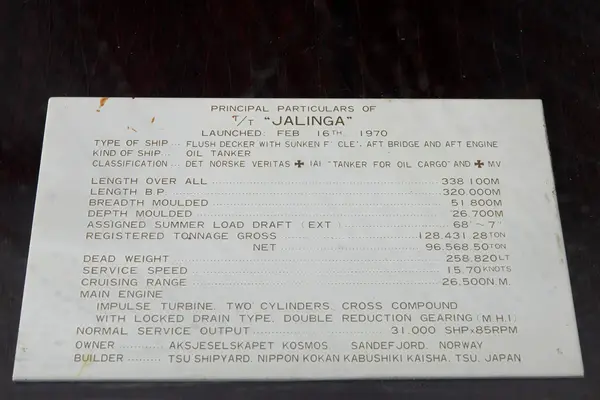 PRINCIPAL PARTICULARS OF
T/T "JALINGA"
LAUNCHED: FEB 16TH, 1970
TYPE OF SHIP ... FLUSH DECKER WITH SUNKEN F'CLE', AFT BRIDGE AND AFT ENGINE
KIND OF SHIP ... OIL TANKER
CLASSIFICATION ... DET NORSKE VERITAS ✠ 1A1 "TANKER FOR OIL CARGO" AND ✠ MV
LENGTH OVER ALL ... 338.100M
LENGTH B.P. ... 320.000M
BREADTH MOULDED ... 51.800M
DEPTH MOULDED ... 26.700M
ASSIGNED SUMMER LOAD DRAFT (EXT.) ... 68'~7"
REGISTERED TONNAGE GROSS ... 128.431.28TON
NET ... 96.568.50TON
DEAD WEIGHT ... 258,820LT
SERVICE SPEED ... 15.70KNOTS
CRUISING RANGE ... 26,500N.M.
MAIN ENGINE
IMPULSE TURBINE, TWO CYLINDERS, CROSS COMPOUND
WITH LOCKED DRAIN TYPE, DOUBLE REDUCTION GEARING (M.H.I.)
NORMAL SERVICE OUTPUT ... 31.000 SHPx85RPM
OWNER ... AKSJESELSKAPET KOSMOS SANDEFJORD, NORWAY
BUILDER ... TSU SHIPYARD, NIPPON KOKAN KABUSHIKI KAISHA, TSU, JAPAN